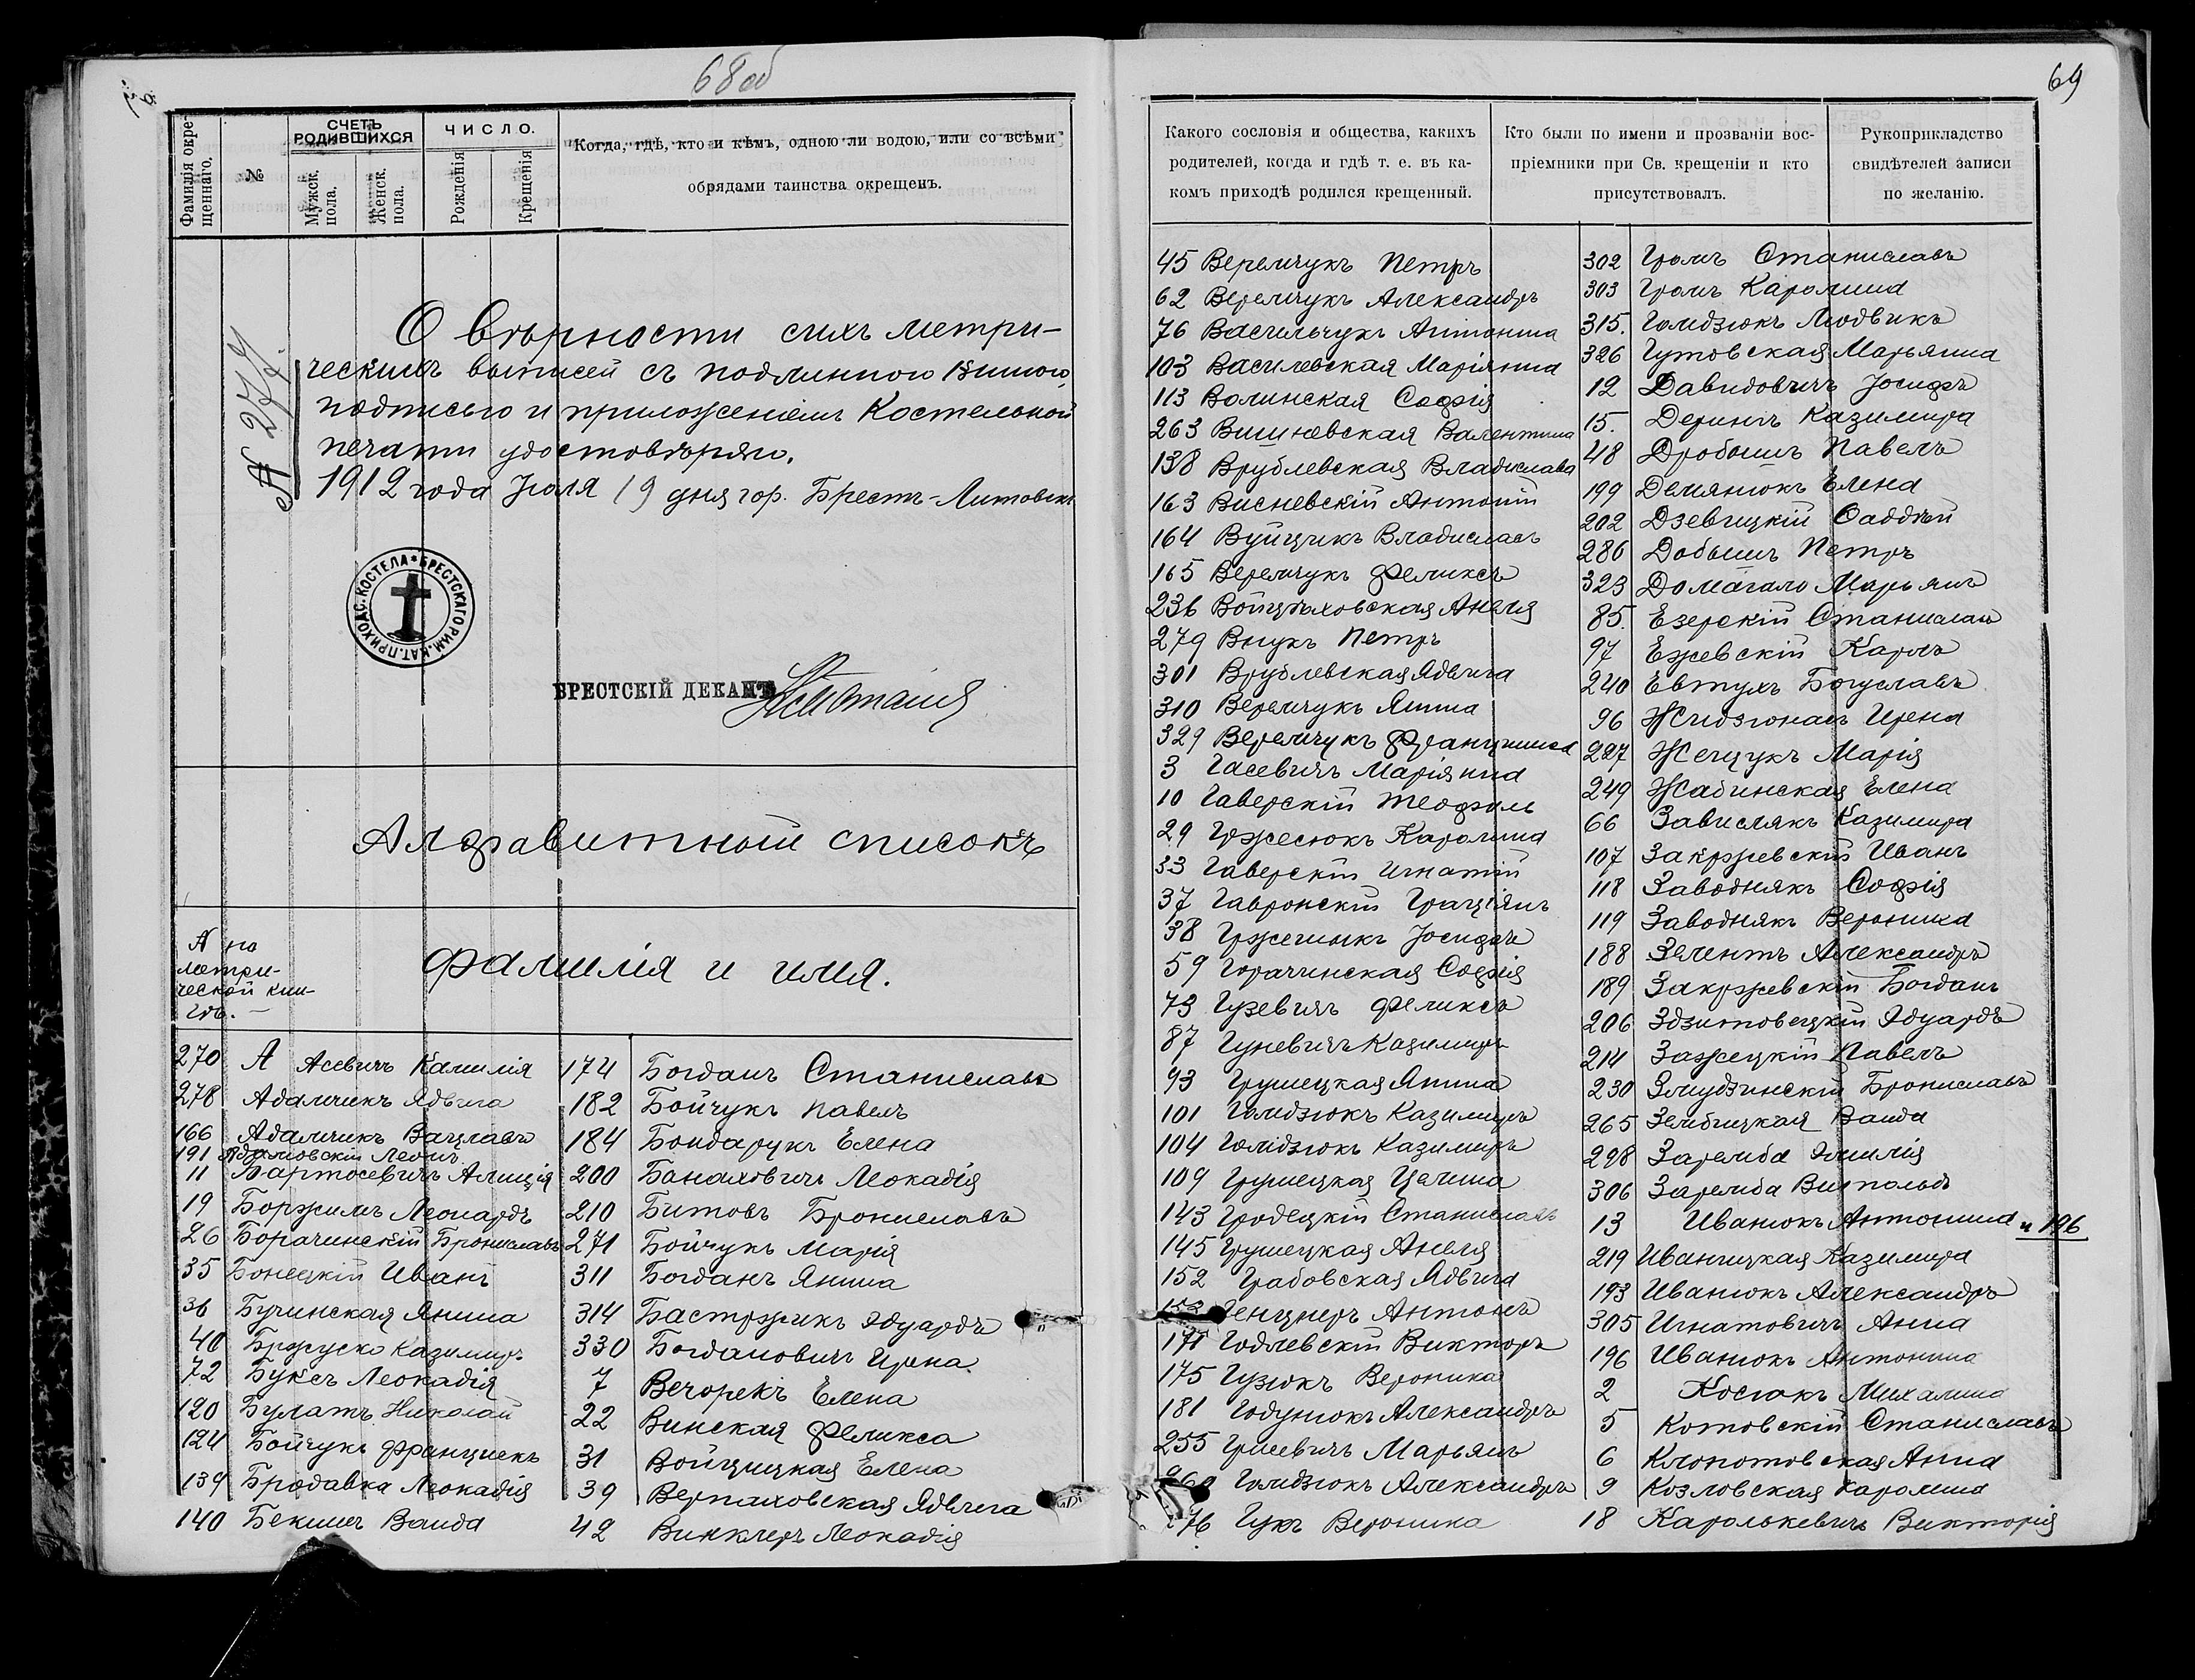 68 об
Фамилія окре-
щеннаго.
№
СЧЕТЪ
РОДИВШИХСЯ
Мужск.
пола.
Женск.
пола.
ЧИСЛО.
Рожденія
Крещенія
Когда, гдѣ, кто и кѣмъ, одною ли водою, или со всѣми
обрядами таинства окрещенъ.
О вѣрности сихъ метри-
ческихъ выписей съ подлинного книгою,
подписью и приложеніемъ Костельной
печати удостовѣряю.
1912 года Іюля 19 дня гор. Брестъ-Литовскъ
№ 277.
БРЕСТСКАГО РИМ. КАТ. ПРИХОДС. КОСТЕЛА
БРЕСТСКІЙ ДЕКАНЪ
Алфавитный списокъ
№ по
метри-
ческой кни-
гѣ.
Фамилія и имя.
270 А Асевичъ Камилія
278 Адамчикъ Ядвига
166 Адамчикъ Вацлавъ
191 Адамовскій Леонъ
11 Бартосевичъ Алиція
19 Боржимъ Леонардъ
26 Борачинскій Брониславъ
35 Бонецкій Иванъ
36 Бучинская Янина
40 Бржуско Казимиръ
72 Буксъ Леокадія
120 Булатъ Николай
124 Бойчукъ Францискъ
139 Бродавка Леокадія
140 Бекишъ Ванда
174 Богданъ Станиславъ
182 Бойчукъ Павелъ
184 Бондарукъ Елена
200 Банаховичъ Леокадія
210 Битовъ Брониславъ
271 Бойчукъ Марія
311 Богданъ Янина
314 Бастржикъ Эдуардъ
330 Богдановичъ Ирена
7 Вечорекъ Елена
22 Винская Феликса
31 Войцицкая Елена
39 Верпаховская Ядвига
42 Винклеръ Леокадія
69
Какого сословія и общества, какихъ
родителей, когда и гдѣ т. е. въ ка-
комъ приходѣ родился крещенный.
Кто были по имени и прозваніи вос-
пріемники при Св. крещеніи и кто
присутствовалъ.
Рукоприкладство
свидѣтелей записи
по желанію.
45 Веремчукъ Петръ
62 Веремчукъ Александръ
76 Васильчукъ Антонина
103 Василевская Маріянна
113 Волинская Софія
263 Вишневская Валентина
138 Врублевская Владислава
163 Висневскій Антоній
164 Вуйцикъ Владиславъ
165 Веремчукъ Феликсъ
236 Войцѣховская Анеля
279 Внукъ Петръ
301 Врублевская Ядвига
310 Веремчукъ Янина
329 Веремчукъ Францишка
3 Гасевичъ Маріянна
10 Гаверскій Теофиль
29 Гржесюкъ Каролина
33 Гаверскій Игнатій
37 Гавронскій Граціянъ
38 Гржегинкъ Іосифъ
59 Горачинская Софія
73 Гузевичъ Феликсъ
87 Гуневичъ Казимиръ
93 Грушецкая Янина
101 Голидзюкъ Казимиръ
104 Голидзюкъ Казимиръ
109 Грушецкая Целина
143 Гродецкій Станиславъ
145 Грушецкая Анеля
152 Грабовская Ядвига
Генцнеръ Антонъ
171 Годлевскій Викторъ
175 Гузюкъ Вероника
181 Годунюкъ Александръ
255 Гриневичъ Марьянъ
260 Голидзюкъ Александръ
276 Гукъ Вероника
302 Громъ Станиславъ
303 Громъ Каролина
315. Голидзюкъ Людвикъ
326 Гутовская Марьянна
12 Давидовичъ Іосифъ
15. Деринъ Казимира
48 Дробышъ Павелъ
199 Демянюкъ Елена
202 Дзевицкій Фаддѣй
286 Добышъ Петръ
323 Домагало Марьянъ
85. Езерскій Станиславъ
97 Ежевскій Кароль
240 Евтухъ Богуславъ
96 Жидзюнасъ Ирена
227 Жещукъ Марія
249 Жабинская Елена
66 Завислякъ Казимира
107 Закржевскій Иванъ
118 Заводнякъ Софія
119 Заводнякъ Вероника
188 Зелентъ Александръ
189 Закржевскій Богданъ
206 Здзитовецкій Эдуардъ
214 Зажецкій Павелъ
230 Змудзинскій Брониславъ
265 Зембицкая Ванда
298 Заремба Эмилія
306 Заремба Витольдъ
13 Иванюкъ Антонина и 196
219 Иваницкая Казимира
193 Иванюкъ Александръ
305 Игнатовичъ Анна
196 Иванюкъ Антонина
2 Косюкъ Михалина
5 Котовскій Станиславъ
6 Клопотовская Анна
9 Козловская Каролина
18 Каролькевичъ Викторія